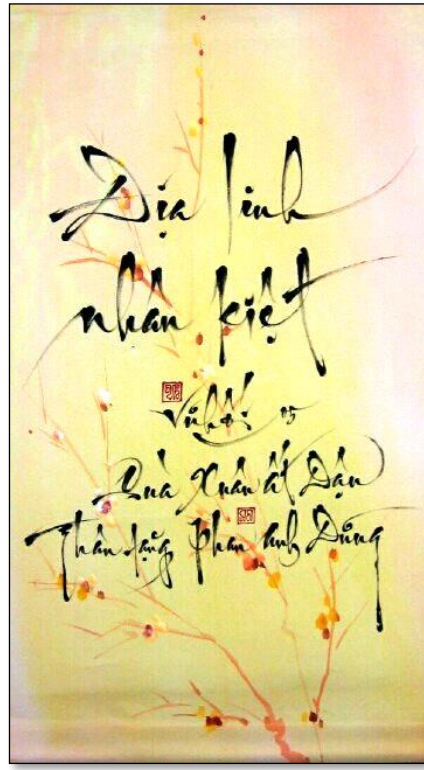 Địa linh
nhân kiệt
Vũ Hối 05
Quà Xuân ất Dậu
Thân tặng Phan Anh Dũng